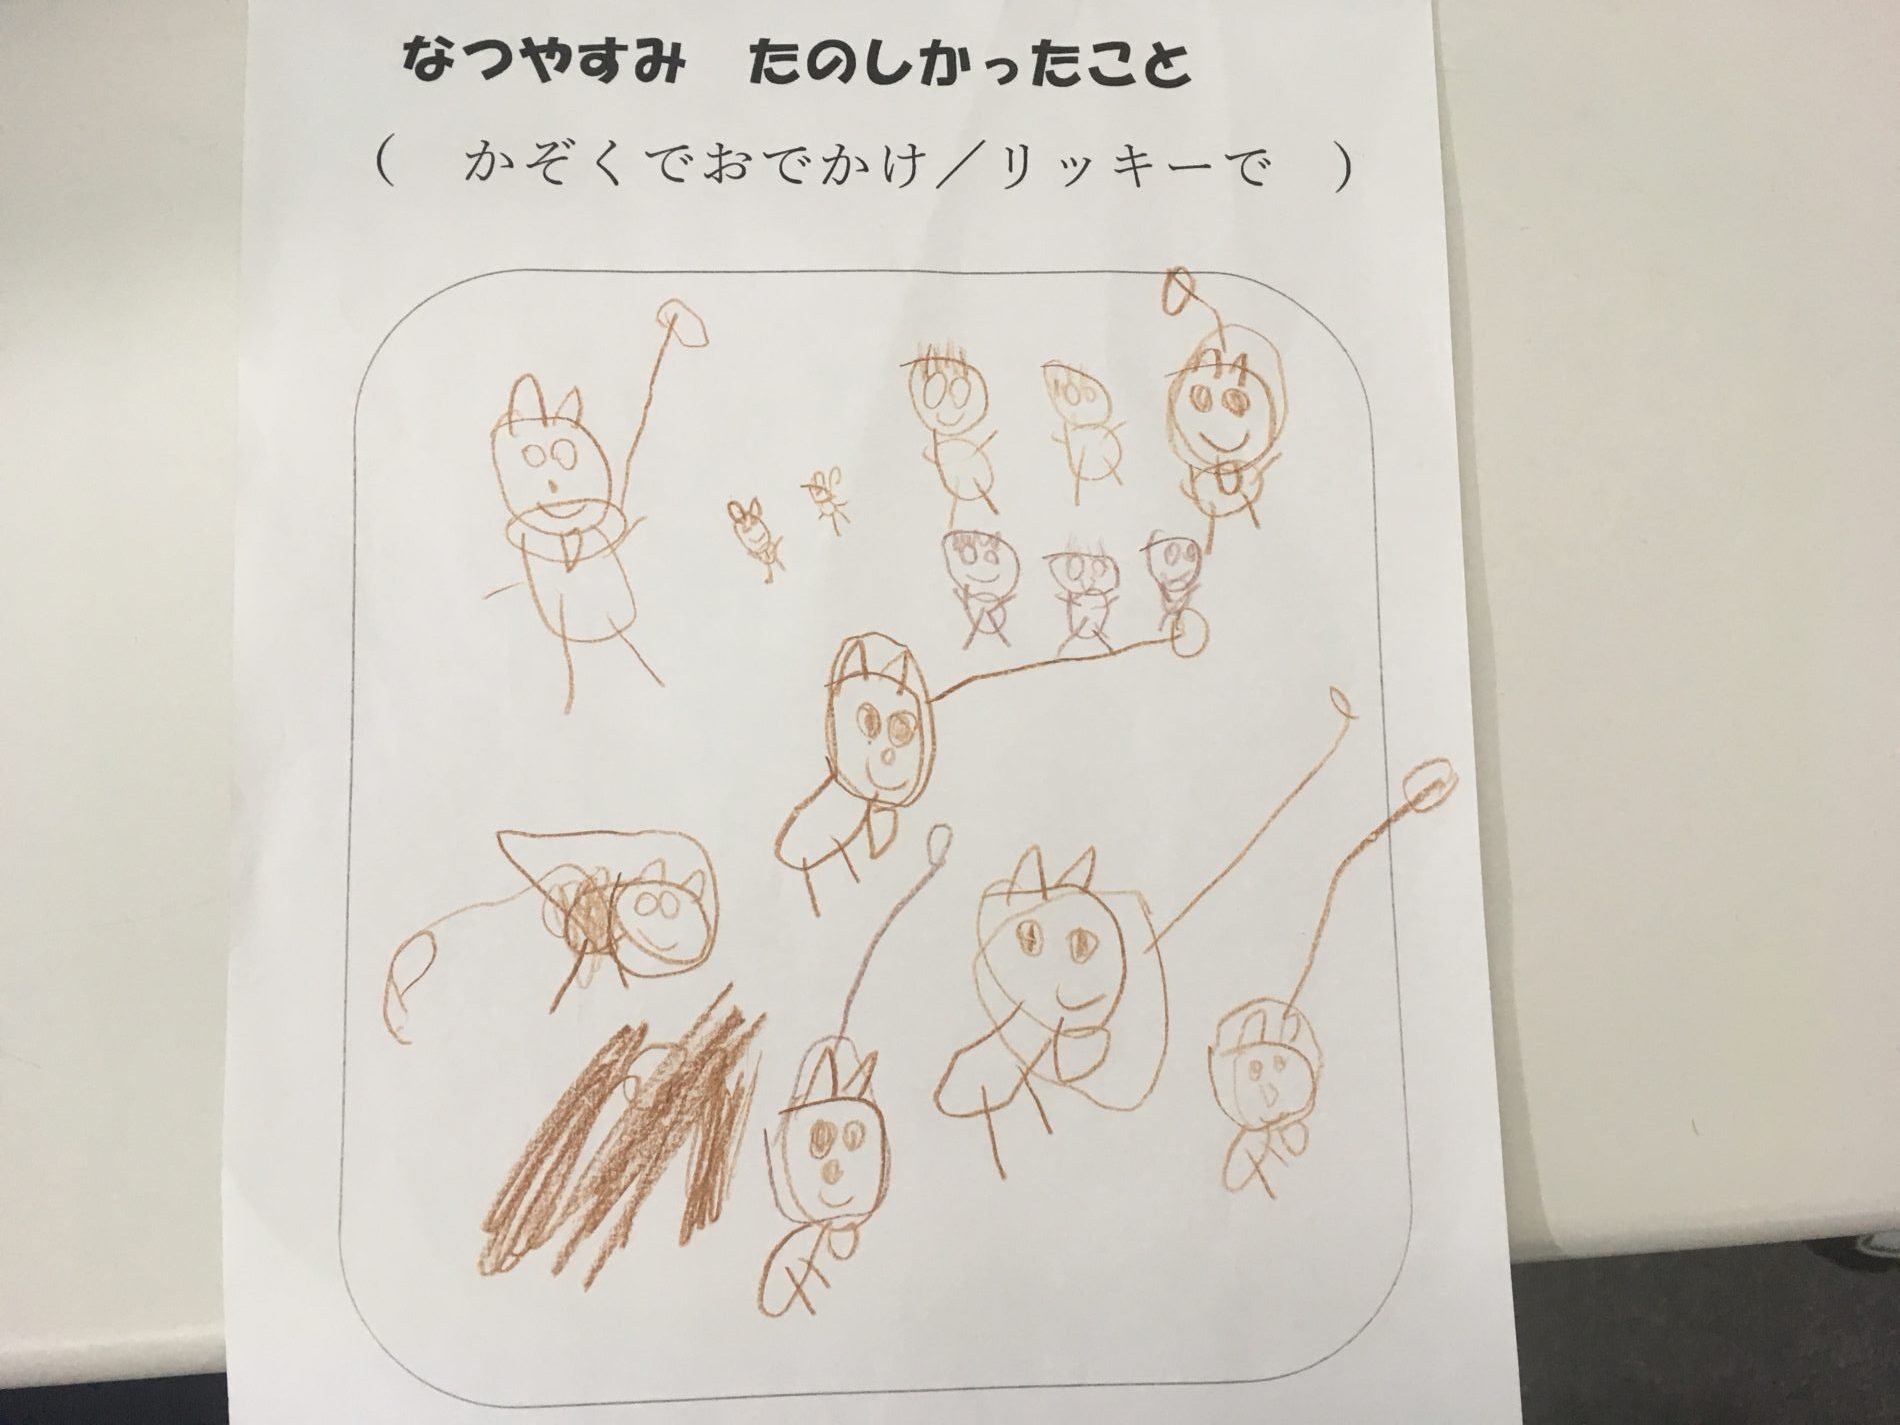 なつやすみ　たのしかったこと
（　かぞくでおでかけ／リッキーで　）